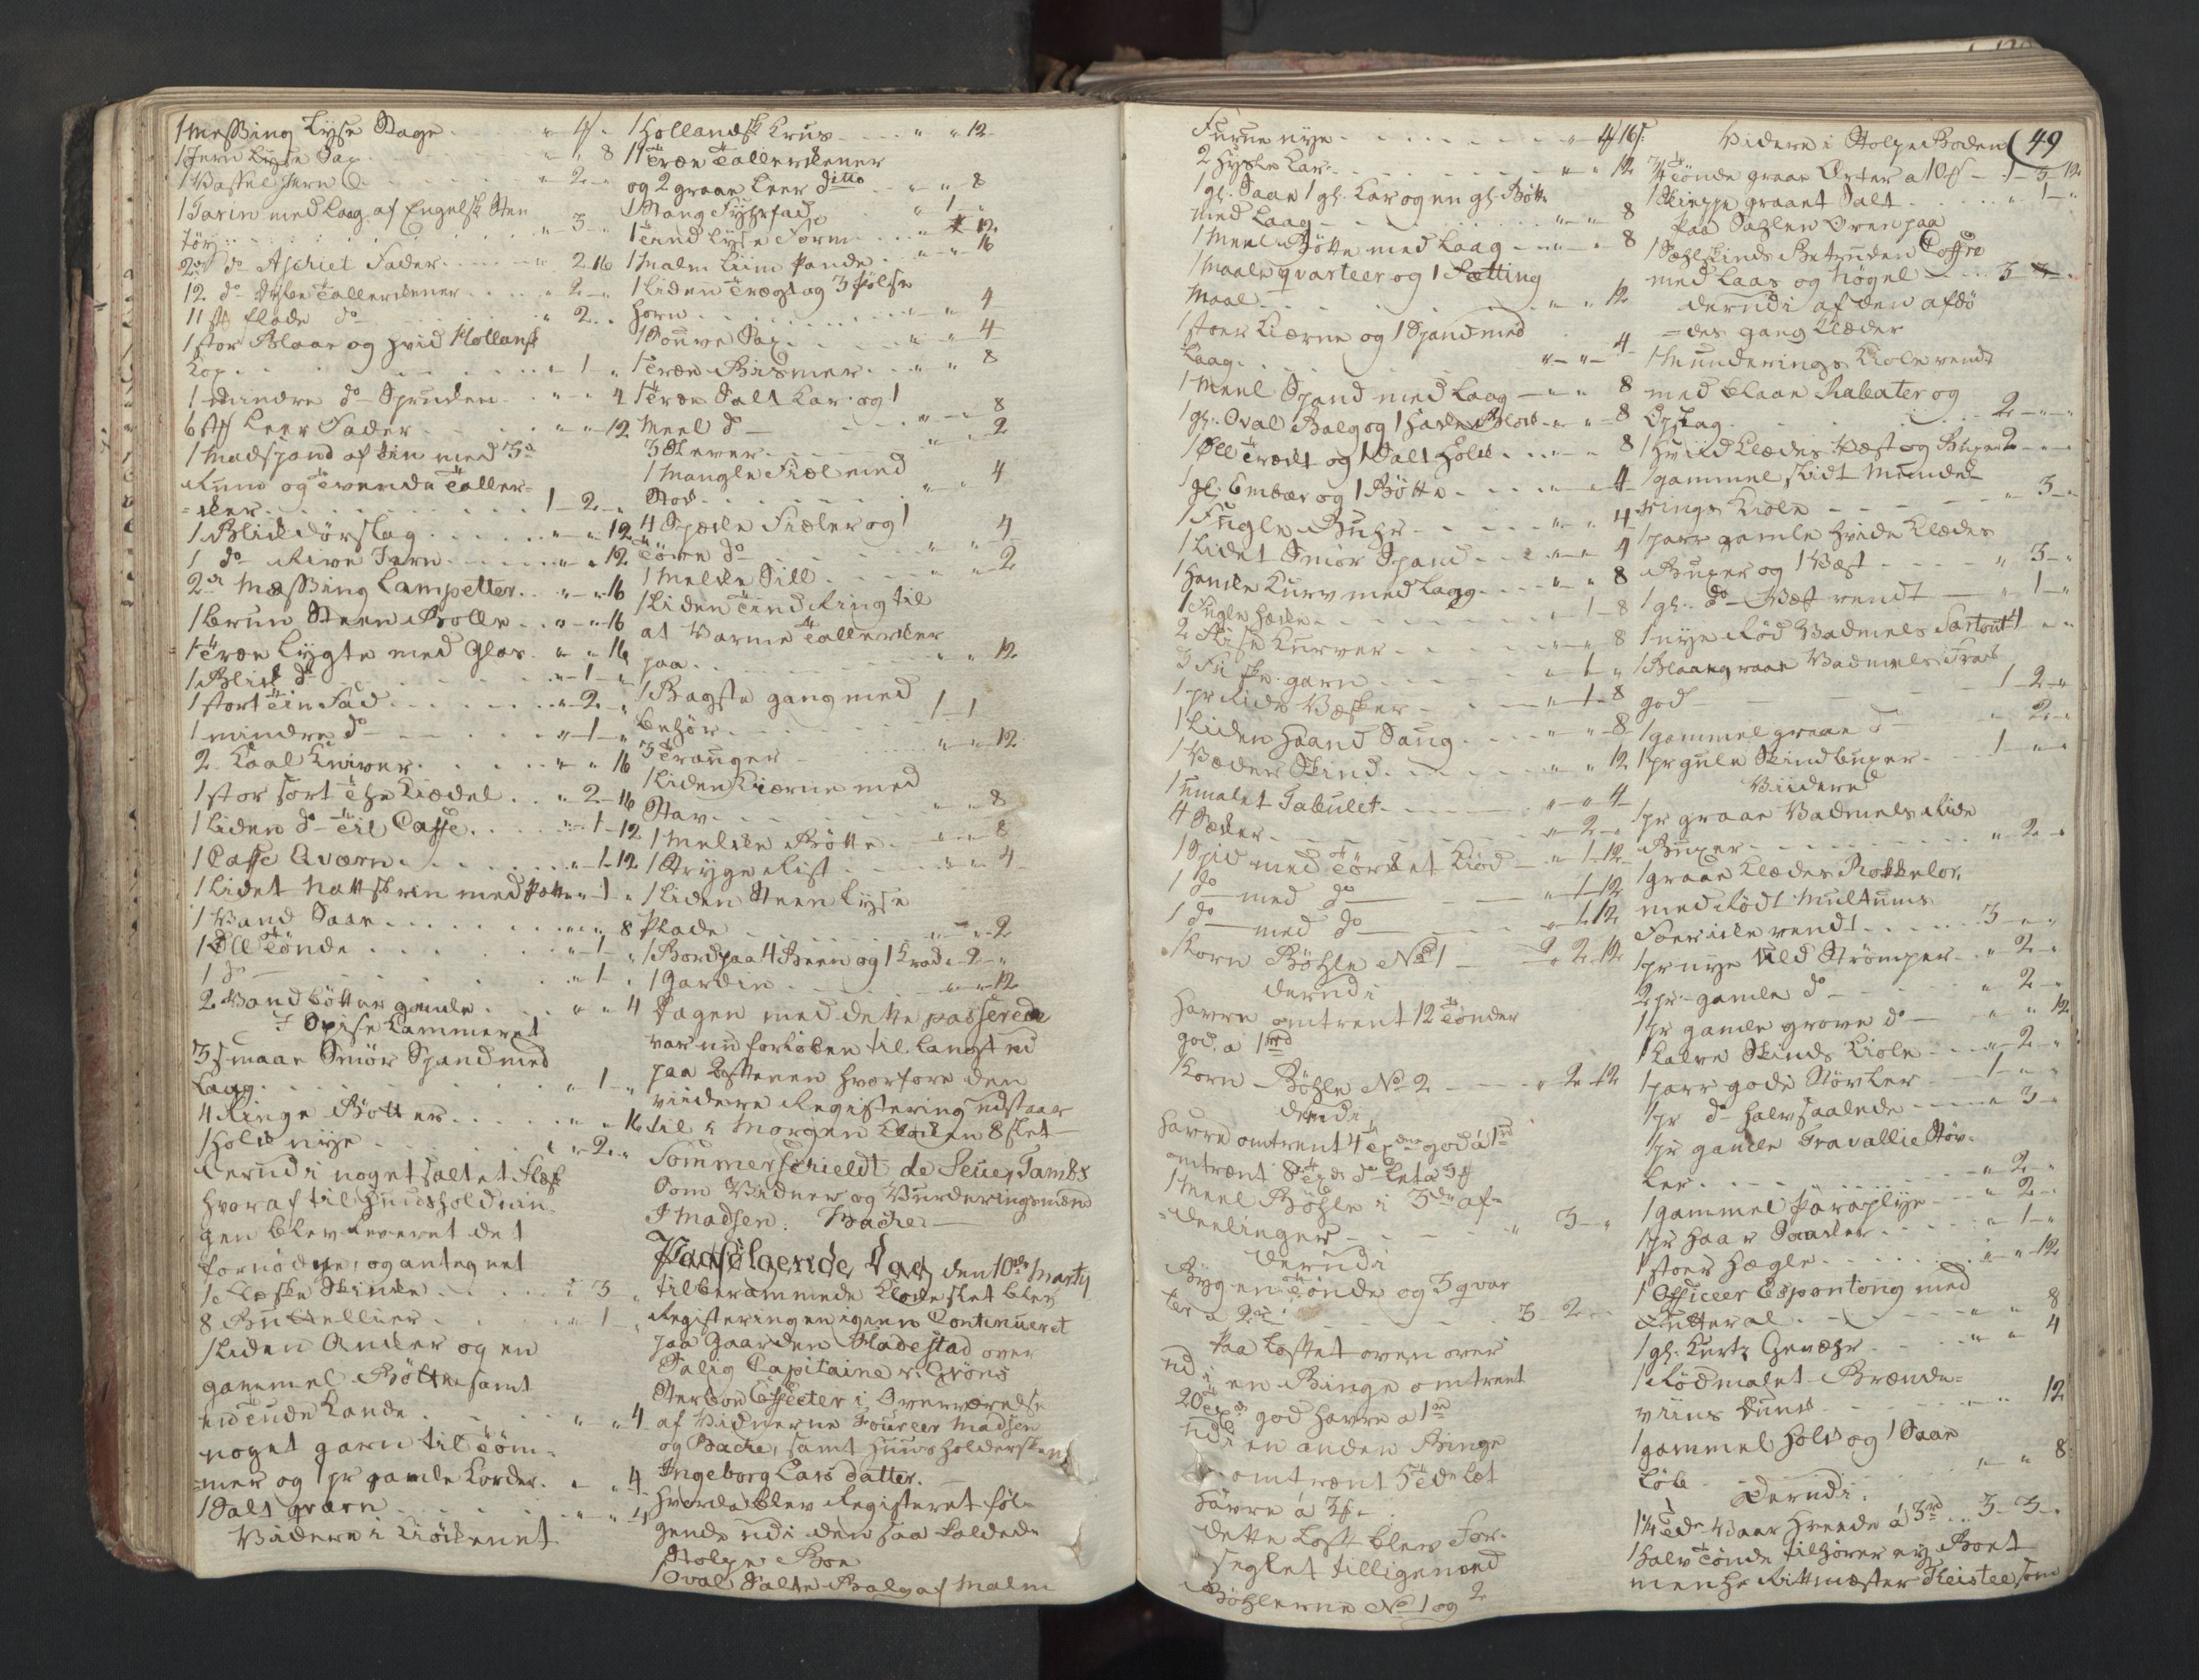 1 Messing Lyse Stage . . . " 4 .
1 Jern Lyse Sax . . . " " 8
1 Vaffel Jern . . . " 2 "
1 Tarin med Laag af Engelsk Sten
töy . . . " 3 "
2de do Aschiet Fader . . . " 2 16
12 do dybe Tallerckener . . . " 2 "
11 st flade do . . . " 2 "
1 stor Blaae og hvid Hollansk
Kop . . . " 1 "
1 mindre do Sprucken . . . " " 4
6 st Leer Fader . . . " " 12
1 Madspand af Tin med 3de
Rum og Tvende Taller-
=cker . . . 1 2 "
1 Blick dörslag . . . " " 12
1 do Rive Jern . . . " " 12
2de Messing Lampetter . . . " " 16
1 brun Steen Bolle . . . " " 16
1 Træe Lygte med Glas . . . " " 16
1 Blick do . . . " 1 "
1 stort Tin Fad . . . " 2 "
1 mindre do . . . " 1 "
2 Kaal Kniver . . . " " 16
1 stor sort The Kiedel . . . " 2 16
1 liden do til Caffe . . . " 1 12
1 Caffe Qværn . . . " 1 12
1 lidet Nattskrin med Potte " 1 "
1 Vand Saae . . . " " 8
1 Öll Tönde . . . " 1 "
1 do . . . " 1 "
2 Vandbötter gamle . . . " " 4
I Spise Kammeret
3 smaae Smör Spand med
Laag . . . " 1 "
4 Ringe Bötter . . . " " 16
1 Holck nye . . . " 2 "
derudi noget saltet Flesk
hvoraf til Huusholdnin-
gen blev leveret det
fornödne, og antegnet
1 Fleske Skinke . . . " 3 "
8 Buttellier . . . " 1 "
1 liden Ancker og en
gammel Bötte samt
en Tude Kande . . . " " 4
noget garn til Töm-
=mer og 1 pr gamle Korder . " " 4
1 Salt qværn . . . " " 4
Videre i Kiöckenet
1 Hollandsk Krus . . . " " 12
11 Træe Tallerckener
og 2 graae Leer ditto . . . " " 8
1 Mang Fyhrfad . . . " 1 "
1 Tend Lyse Form . . . " " 12
1 Malm Liim Pande . . . " " 16
1 liden Trægt og 3 Pölse
Horn . . . " " 4
1 Souve Sax . . . " " 4
1 Træe Bismer . . . " " 8
1 Træe Salt Kar og 1
Meel do . . . " " 8
3 Slever . . . " " 2
1 Mangle Fiæl med
Stock . . . " " 4
4 Specke Fiæler og 1
Töire do . . . " " 4
1 Melcke Sill . . . " " 2
1 liden Tind Ring til
at Varme Tallercker
paa . . . " " 12
1 Bagste gang med
behör . . . 1 1
3 Trauger . . . " " 12
1 liden Kierne med
Stav . . . " " 8
1 Melcke Bötte . . . " " 8
1 Stryge Rist . . . " " 4
1 liden Steen Lyse
Plade . . . " " 2
1 Bord paa 4 Been og 1 Krack " 2 "
1 Gardin . . . " " 12
Dagen med dette passerede
var nu forlöben til langt ud
paa Aftenen hvorfore den
viidere Registering udstaar
til i Morgen Klocken 8 slet
Sommerschieldt de Seue, Tambs
Som Vidner og Vurderingsmænd
J Madsen. Bache
Paafölgende Dag, den 10de Marty
til berammede Klockeslet blev
Registeringen igien Continueret
paa Gaarden Fladestad over
Salig Capitaine v: Gröns
Sterboe Effecter i Overværelse
af Vidnerne Foureer Madsen
og Bache, samt Huusholdersken
Ingeborg Lars datter.
Hvorda blev Registeret föl-
gende udi den saa kaldede
Stolpe Boe
1 Oval Salte Balg af Malm
Furue nye . . . " 4 16
2 Hyske Kar . . . " " 12
1 gl. Saae 1 gl. Kar og en gl. Bötte
med Laag . . . " " 8
1 Meel Bötte med Laag . . . " " 8
1 Maale qvarteer og 1 Setting
Maal . . . " " 12
1 stoer Kierne og 1 Spand med
Laag . . . " " 4
1 Meel Spand med Laag " " 8
1 gl. Oval Balg og 1 Hacke Block " " 8
1 Öll Tragt og 1 Salt Holck . . . " " 8
1 gl. Embar og 1 Bötte . . . " " 4
1 Fugle Buhr . . . " " 4
1 lidet Smör Spand . . . " " 4
1 Hancke Kurv med Lagg . . . " " 8
1 Fugle Hæcke . . . " 1 8
2 Kurver . . . " " 8
3 Fiske garn . . . " 1 "
1 pr Ride Væsker . . . " 1 8
1 liden Haand Saug . . . " " 8
1 Væder Skind . . . " " 12
1 umalet Tabulet . . . " " 4
4 Sæcker . . . " 2 "
1 Spid med Törcket Kiöd . " 1 12
1 do med do . . . " 1 12
1 do med do . . . " 1 12
1 Korn Böhle No 1 . . . 2 12
derudi
Havre omtrent 12 Tönder
god, a 1 rd
1 Korn Böhle No 2 . . . " 2 12
derudi
Havre omtrent 4 god á 1 rd
omtrent 8 do let a 3
1 Meel Böhle i 3de af-
=deelinger . . . " 3 "
derudi
Byg en Tönde og 3 qvar
ter a 2 rd . . . 3 2 "
Paa Loftet oven over
udi en Binge omtrent
20 god Havre a 1 rd
udi en anden Binge
omtrent 5 let
Havre á 3
dette Loft blev For-
seglet tilligemed
Böhlerne No 1 og 2
Videre i Stolpe Boden (49
¾ Tönde graae Erter a 10 . . . 1 3 12
1 Skieppe graaet Salt . . . " 1 "
Paa Sahlen Oven paa
1 Sæhlskinds Betrucken Coffre
med Laas og Nögel . . . 3 "
derudi af den afdö
=des gang Klæder
1 Munderings Kiole vendt
med blaae Rabater og
Opslag . . . 2 " "
1 hviid Klædes Væst og Buxer 2 " "
1 gammel slidt Munde-
rings Kiole . . . " 3 "
1 parr gamle hvide Klædes
Buxer og 1 Væst . . . " 3 "
1 gl. do Væst vendt . . . " 1 "
1 nye Röd Vadmels Sartout 4 " "
1 Blaaegraae Vadmels Frack
god . . . 1 2 "
1 gammel graae do . . . " 2 "
1 pr gule Skindbuxer . . . 1 " "
Viidere
1 pr graae Vadmels Ride
Buxer . . . " 2 "
1 graae Klædes Rockelor
med Rödt Multums
Foer icke vendt . . . 3 " "
1 pr nye Uld Strömper . . . " 2 "
2 pr. gamle do . . . " 2 "
1 pr gamle grove do . . . " " 12
1 Kalve Skinds Kiole . . . " 2 "
1 parr gode Stövler . . . 1 " "
1 pr do halvsaalede . . . " 3 "
1 pr gamle Travallie Stöv-
ler . . . " 2 "
1 gammel Paraplye . . . " 2 "
1 pr Haar Sacker . . . " 1 "
1 stoer Hægle . . . " " 12
1 Officeer Espontong med
Futteral . . . " " 8
1 gl. Kurtz Gevæhr . . . " " 4
1 Rödmalet Brænde=
viins Dunck . . . " " 12
1 gammel Holck og 1 Saae
Löb . . . " " 8
Derudi.
1¼ Tde Vaar Hvede á 3 rd . . . 3 3 "
1 halv Tönde tilhörer ey Boet
men Hr Rittmester Fleistee som